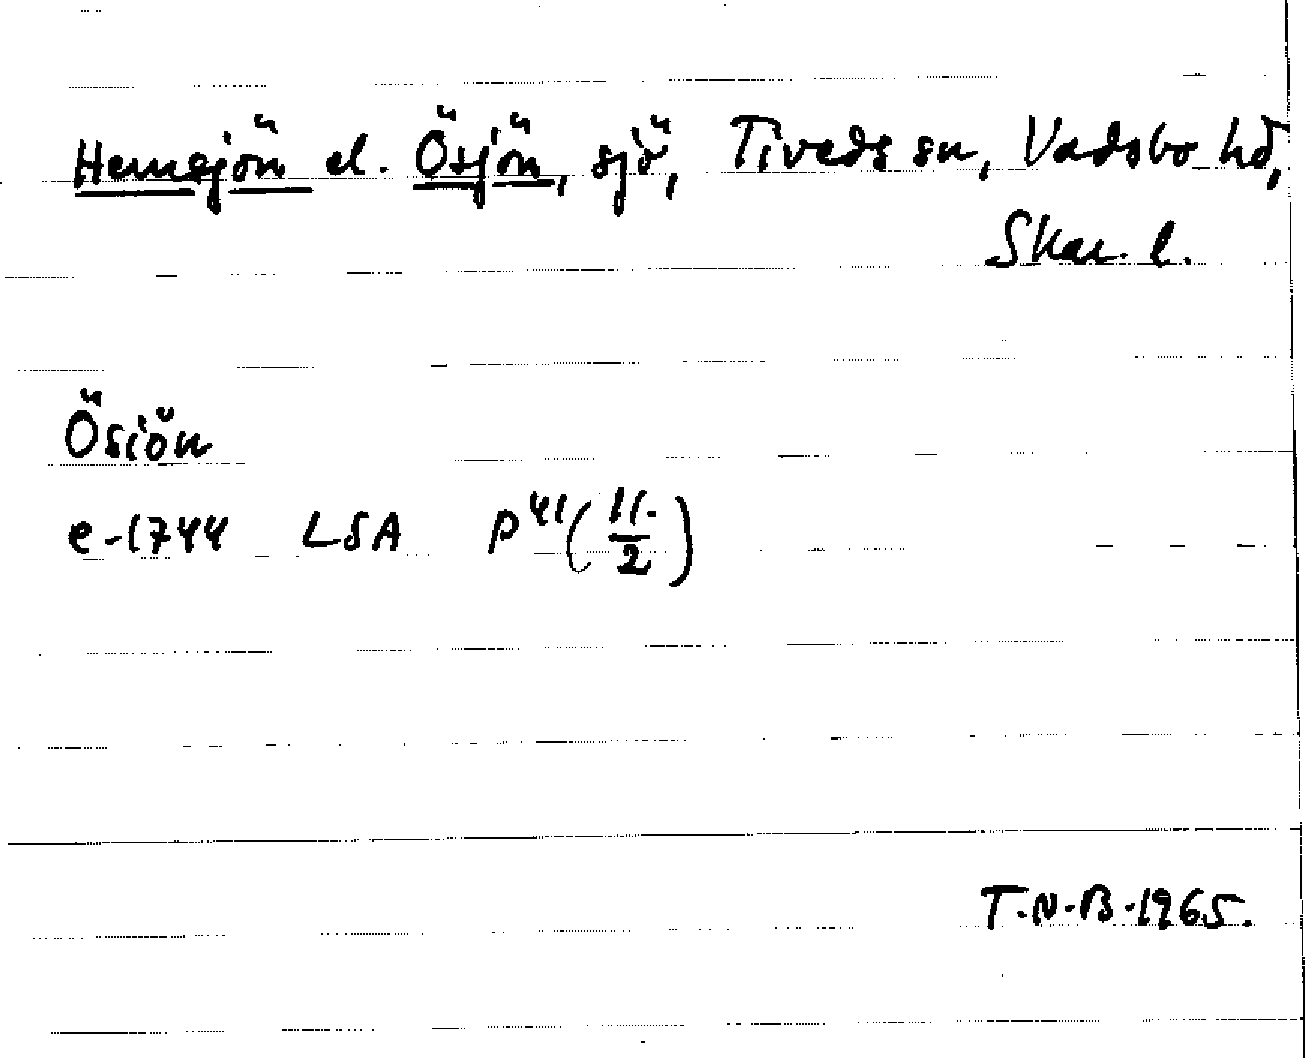 Hemsjön el. Ösjön, sjö, Tiveds sn, Vadsbo hd,
Skar. l.
Ösiön
e-1744 LSA P41 (11./2)
T.N.B. 1965.